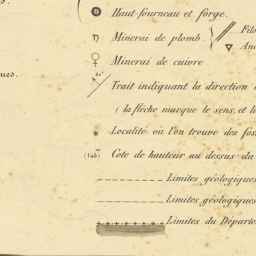 Haut-fourneau et forge.
Minerai de plomb.
Minerai de cuivre
ues.
45°
Trait indiquant la direction
(la flèche marque le sens, et l
Localité où l'on trouve des fos
(148m) Cote de hauteur au dessus du
Limites géologiques
Limites géologiques
Limites du Départe